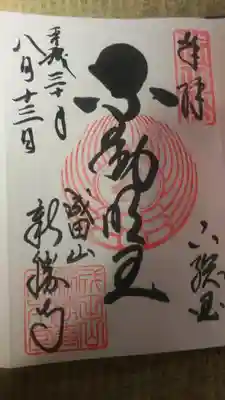 奉拝
下総国
不動明王
成田山
新勝寺
平成三十年
八月十三日